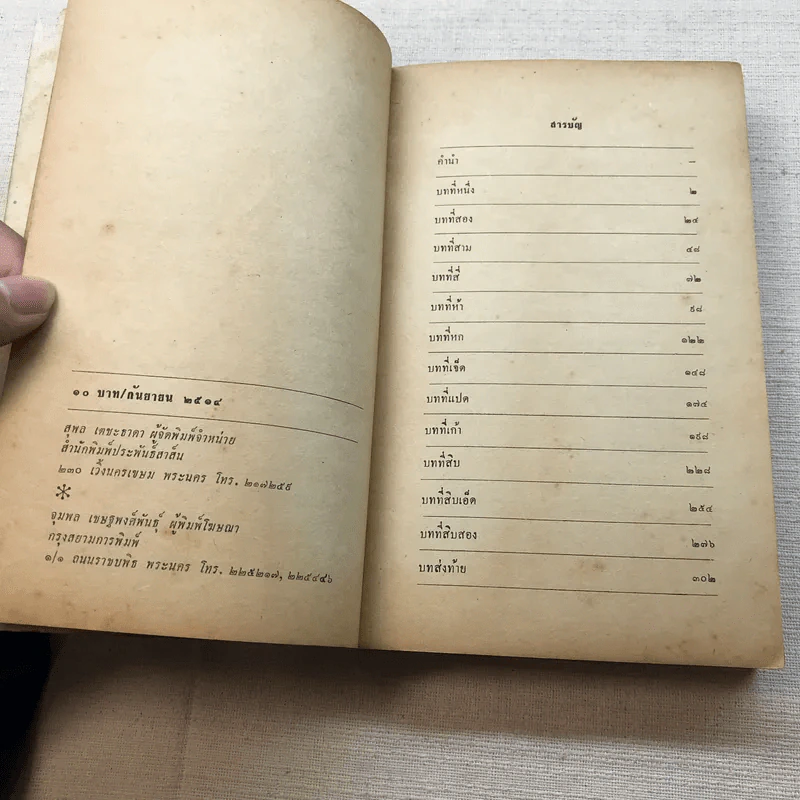 ๑๐ บาท/กันยายน ๒๕๑๔
สุพล เตชะธาดา ผู้จัดพิมพ์จำหน่าย
สำนักพิมพ์ประพันธ์สาส์น
๒๓๐ เวิ้งนครเขษม พระนคร โทร. ๒๑๗๒๕๙
จุมพล เชษฐพงศ์พันธุ์ ผู้พิมพ์โฆษณา
กรุงสยามการพิมพ์
๑/๑ ถนนราชบพิธ พระนคร โทร. ๒๒๕๒๑๗, ๒๒๕๔๔๖
สารบัญ
คำนำ –
บทที่หนึ่ง ๒
บทที่สอง ๒๔
บทที่สาม ๔๘
บทที่สี่ ๗๒
บทที่ห้า ๙๘
บทที่หก ๑๒๒
บทที่เจ็ด ๑๔๘
บทที่แปด ๑๗๔
บทที่เก้า ๑๙๘
บทที่สิบ ๒๒๘
บทที่สิบเอ็ด ๒๕๔
บทที่สิบสอง ๒๗๖
บทส่งท้าย ๓๐๒